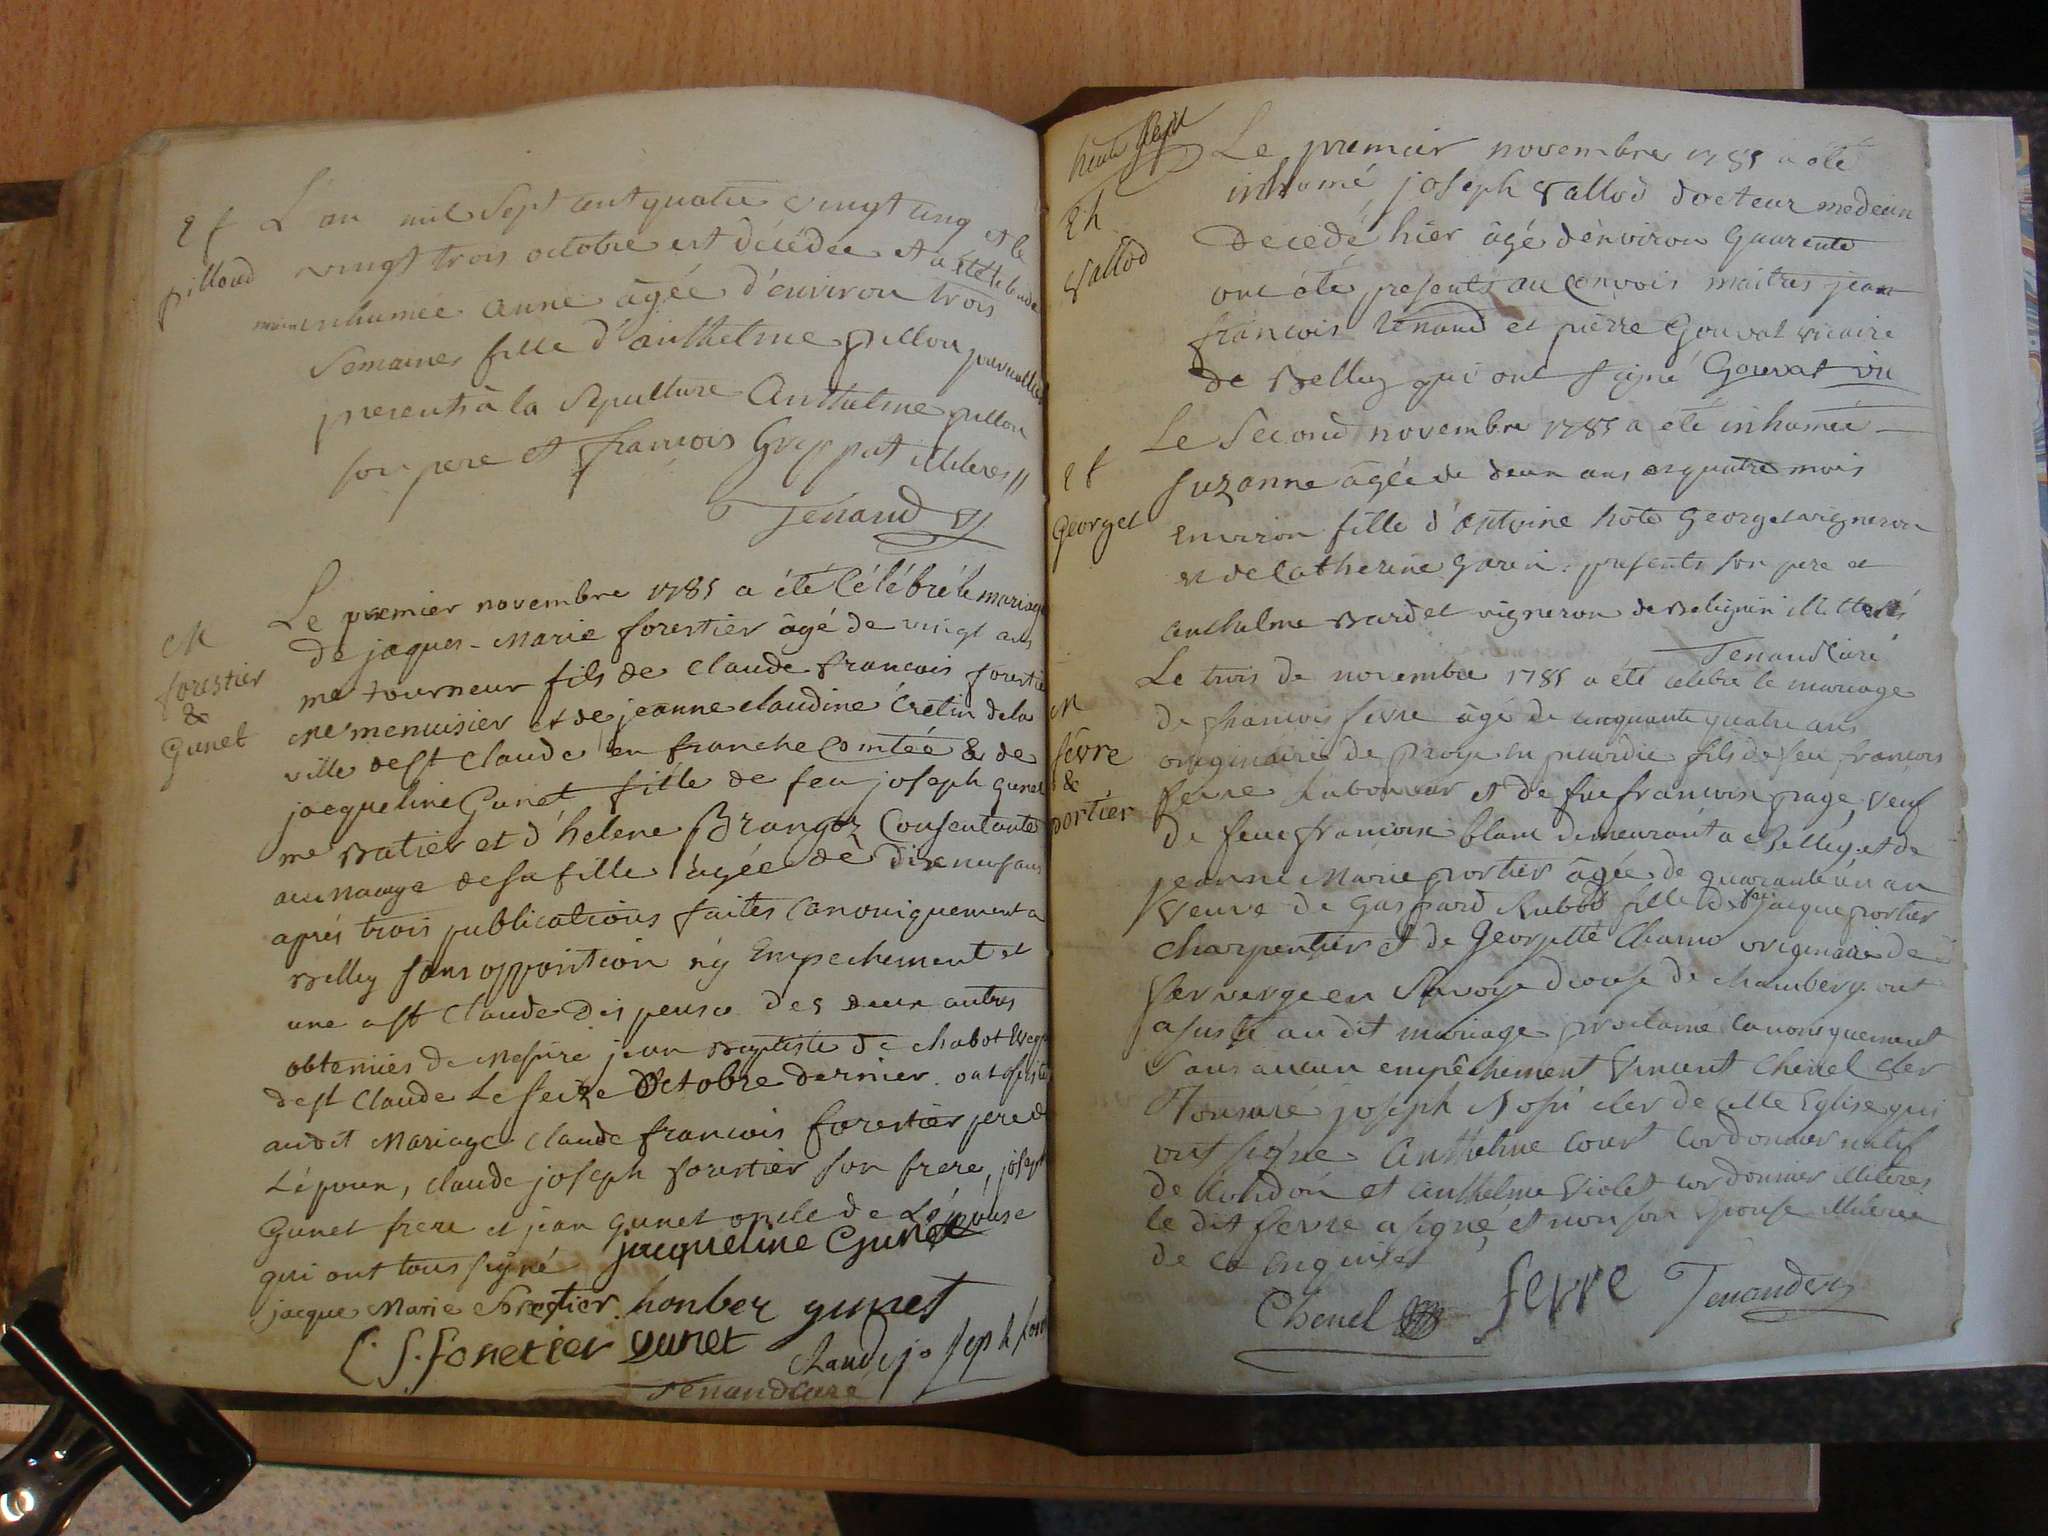 E f
pilloud
L'an mil Sept cent quatre vingt cinq et le
vingt trois octobre est décédée et a été
inhumée anne âgée d'environ trois
Semaines fille d'anthelme pillou
presents à la Sepulture Anthelme pillou
son pere et françois Grippat illiteres //
Tenand
M
forestier
&
Gunet
Le premier novembre 1785 a été Célébré le mariage
de jaques-Marie forestier âgé de vingt ans
me tourneur fils de claude françois forestie
me menuisier et de jeanne claudine Cretin de la
ville de St Claude en franche Comtée & de
jacqueline Gunet fille de feu joseph gunet
me Batier et d'helene Brangoz Consentante
au mariage de sa fille âgée de dixneuf ans
aprés trois publications faites Canoniquement a
Belley sans opposition ny Empechement et
une a St Claude dispense des deux autres
obtenües de Messire jean Baptiste de chabot
de St Claude Le seize Octobre dernier. ont assisté
audit Mariage claude françois forestier pere de
L'époux, claude joseph forestier son frere, joseph
Gunet frere et jean gunet oncle de L'épouse
qui ont tous signé jacqueline Gunet
jacque Marie forestier. honber gunet
C. f. foretier gunet
claude joseph fore
Tenand Curé
Eh
Vallod
Le premier novembre 1785 a été
inhumé joseph Vallod docteur medecin
decedé hier âgé d'environ quarente
ont été presents au Convois maitres jean
françois Tenand et pierre Gouvat vicaire
de Belley qui ont signé Gouvat vic
E f
Georget
Le Second novembre 1785 a été inhumée
Suzanne âgée de deux ans et quatre mois
environ fille d'Antoine hote Georget vigneron
et de Catherine Garin. presents son pere et
anthelme Bardet vigneron de Belignin illitterés
Tenand Curé
M
févre
&
portier
Le trois de novembre 1785 a été celebré le mariage
de francois fevre âgé de cinquante quatre ans
originaire de proye en picardie fils de feu françois
fevre Laboureur et de fue francoise page, veuf
de feue francoise blanc demeurant a Belley. et de
jeanne Marie portier âgée de quarante un an
veuve de Gaspard Rubod fille de feu jacque portier
charpentier et de Georgette Chamo originaire de
en Savoye diocese de chambery. ont
assisté au dit mariage proclamé canoniquement
sans aucun empêchement Vincent Chenel cler
Tonsuré joseph cler de cette Eglise qui
ont signé. Anthelme Court cordonnier natif
de et anthelme Violet cordonnier illiteres
le dit fevre a signé, et non son Epouse illiteree
de ce enquise
Chenel fevre Tenand